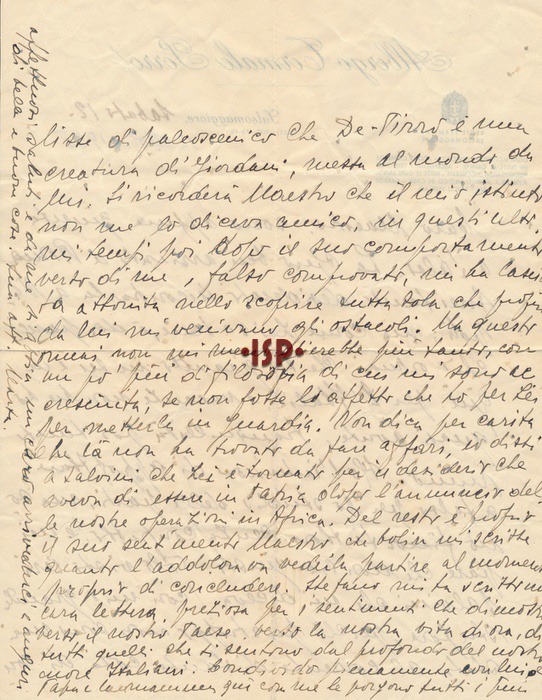 Albergo Termale Porro
Salsomaggiore,
Sabato 12.
liste di palcoscenico che De-Pirro è una
creatura di Giordani, messa al mondo da
lui. Si ricorderà Maestro che il mio istinto
non me lo diceva amico, in questi ulti-
mi tempi poi dopo il suo comportamento
verso di me, falso comprovato, mi ha lascia
ta attonita nello scoprire tutta sola che proprio
da lui mi venivano gli ostacoli. Ma questo
ormai non mi
·ISP·
più tanto, con
un po' più di filosofia di cui mi sono ac
cresciuta, se non fosse l'affetto che ho per Lei
per metterla in guardia. Non dica per carità
che là non ha trovato da fare affari, io dissi
a Salvini che Lei è tornato per il desiderio che
aveva di essere in Patria dopo l'annuncio del
le nostre operazioni in Africa. Del resto è proprio
il suo sentimento Maestro che mi scrisse
quanto l'addolorava vederla partire al momento
proprio di concludere. Stefano mi ha scritto una
cara lettera, preziosa per i sentimenti che dimostra
verso il nostro Paese verso la nostra vita di ora, di
tutti quelli che si sentono dal profondo del nostro
cuore Italiani. Condivido pienamente con lui e
Papà e la mamma, qui con me le porgono tutti i più
affettuosi saluti e di me ti abbia un caro arrivederci e auguri
di belle e buone cose. Sua aff.